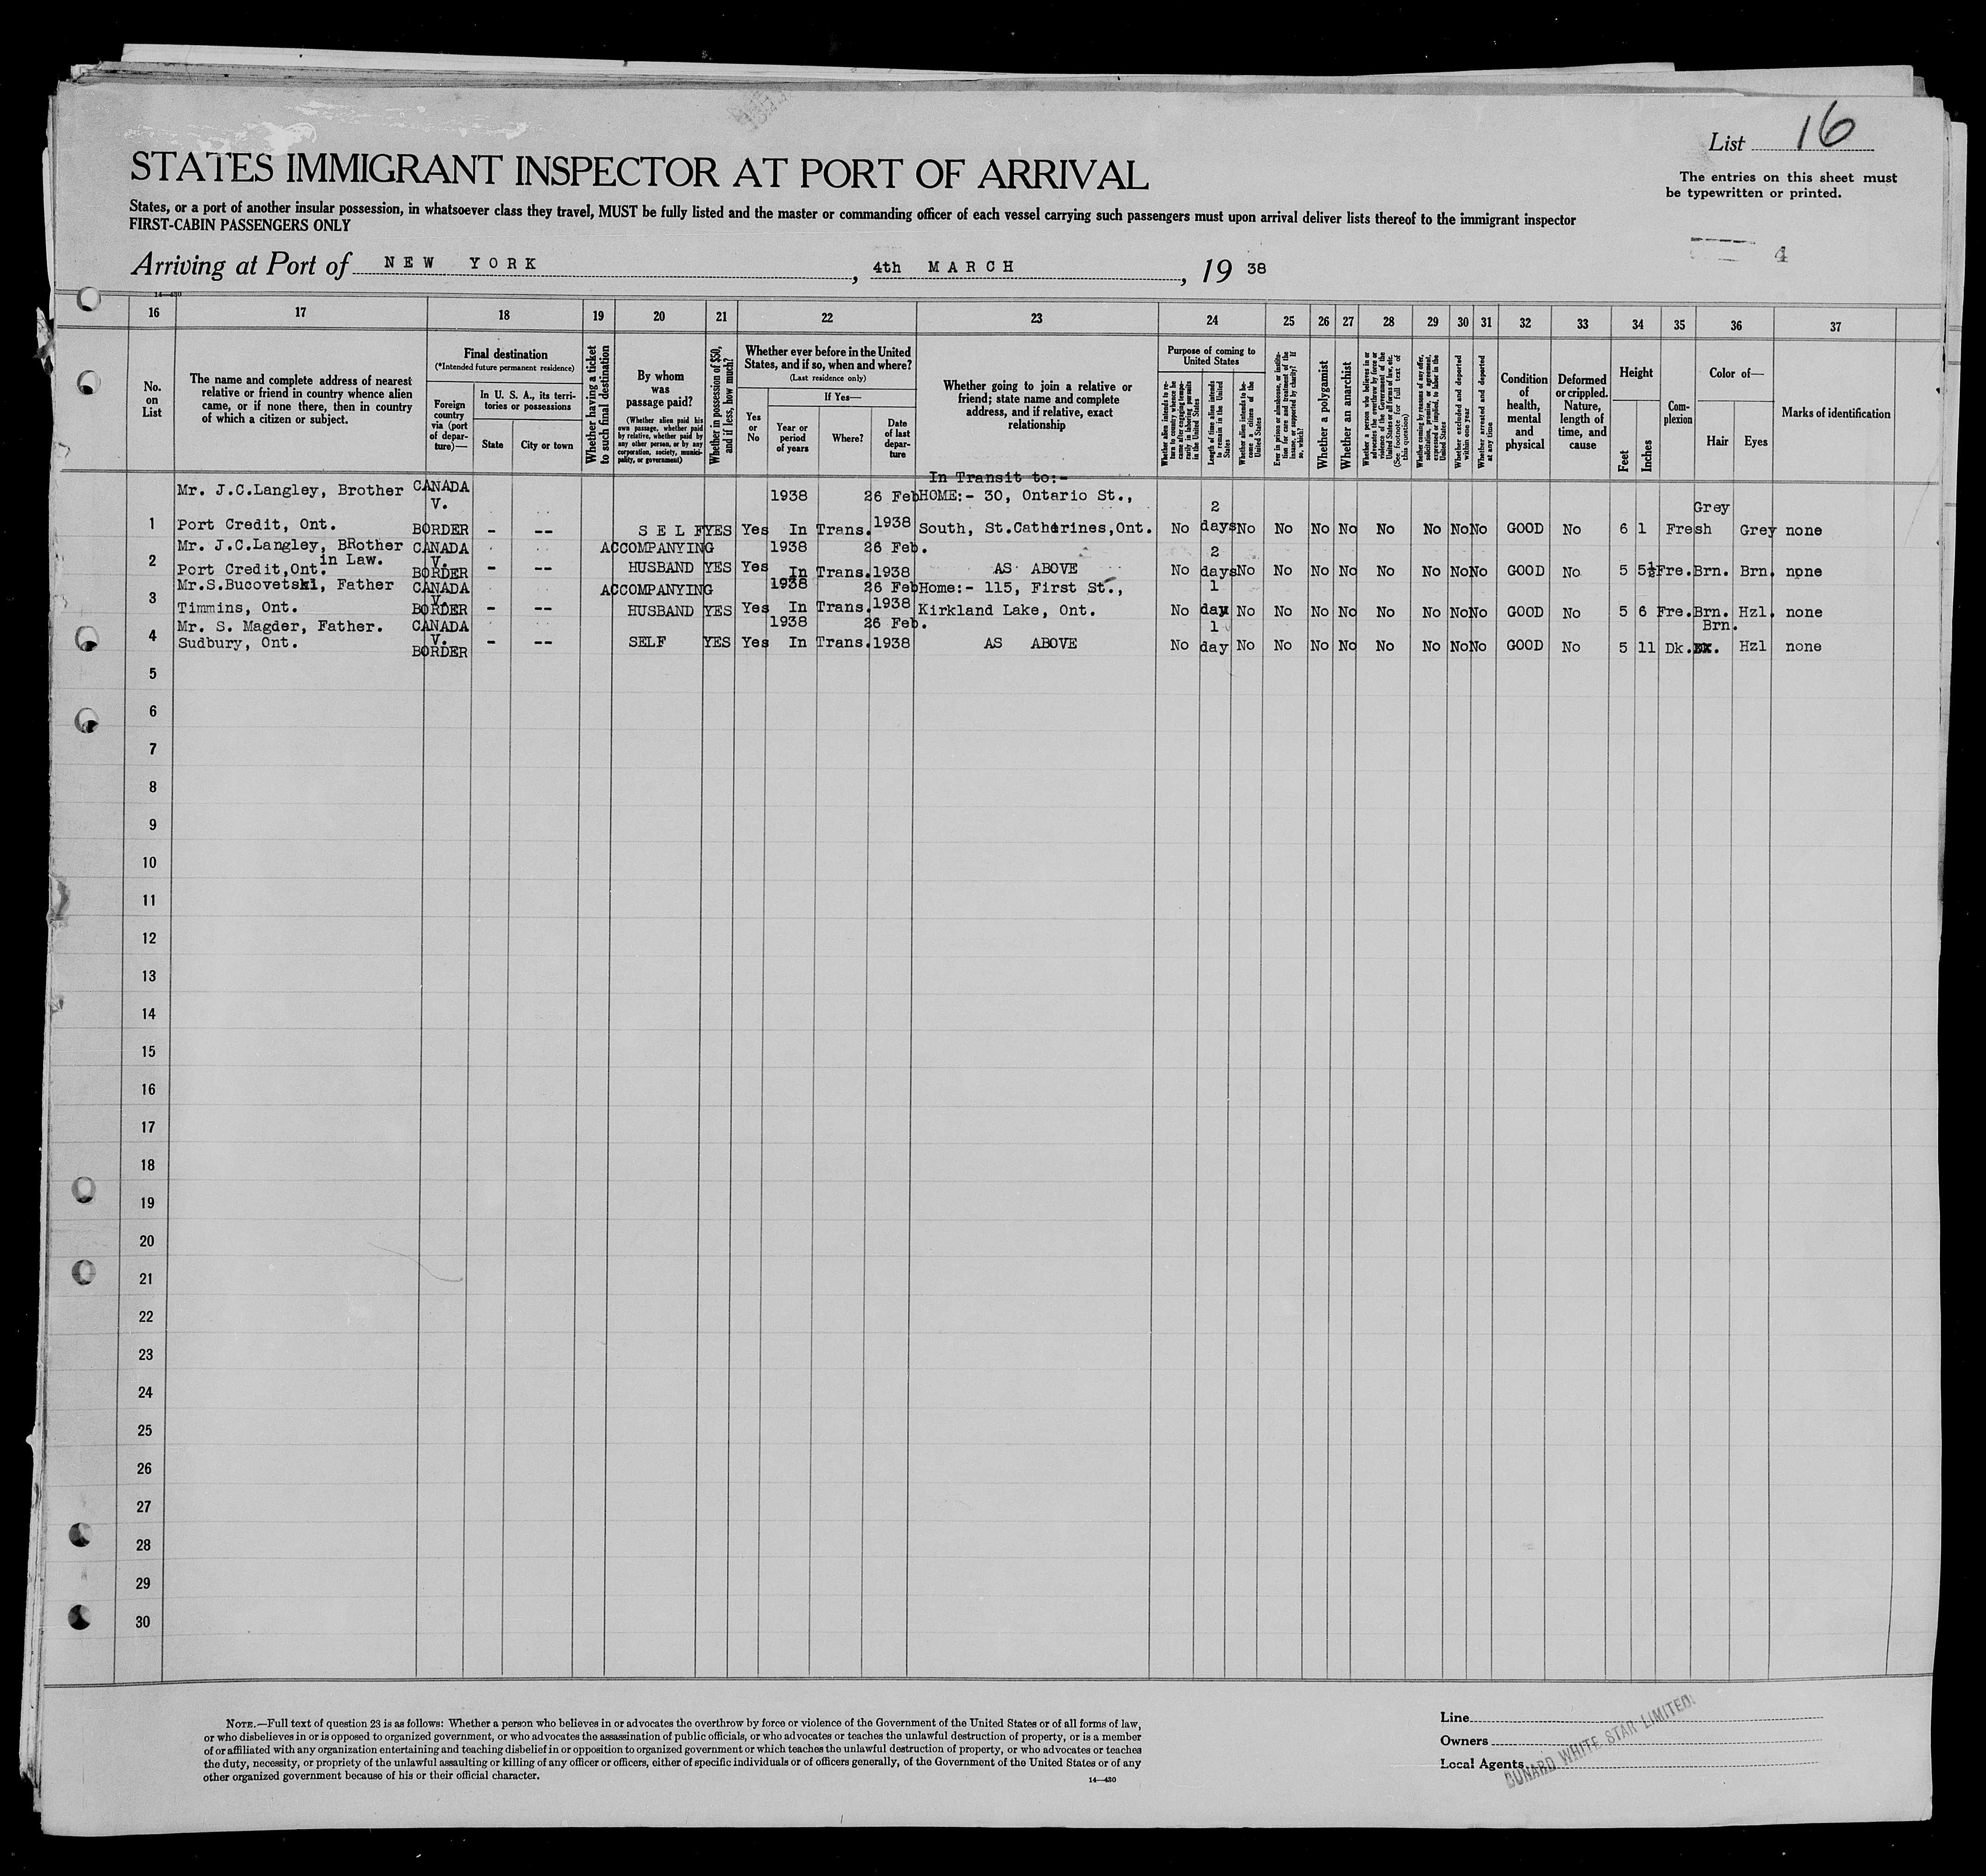 List 16
The entries on this sheet must
be typewritten or printed.
STATES IMMIGRANT INSPECTOR AT PORT OF ARRIVAL
States, or a port of another insular possession, in whatsoever class they travel, MUST be fully listed and the master or commanding officer of each vessel carrying such passengers must upon arrival deliver lists thereof to the immigrant inspector
FIRST-CABIN PASSENGERS ONLY
4
Arriving at Port of NEW YORK, 4th MARCH, 19 38
14—430
16 17 18 19 20 21 22 23 24 25 26 27 28 29 30 31 32 33 34 35 36 37
No. on List
The name and complete address of nearest relative or friend in country whence alien came, or if none there, then in country of which a citizen or subject.
Final destination
(*Intended future permanent residence)
Foreign country via (port of departure)—
In U. S. A., its territories or possessions
State
City or town
Whether having a ticket to such final destination
By whom was passage paid?
(Whether alien paid his own passage, whether paid by relative, whether paid by any other person, or by any corporation, society, municipality, or government)
Whether in possession of $50, and if less, how much?
Whether ever before in the United States, and if so, when and where?
(Last residence only)
Yes or No
If Yes—
Year or period of years
Where?
Date of last departure
Whether going to join a relative or friend; state name and complete address, and if relative, exact relationship
Purpose of coming to United States
Whether alien intends to return to country whence he came after engaging temporarily in laboring pursuits in the United States
Length of time alien intends to remain in the United States
Whether alien intends to become a citizen of the United States
Ever in prison or almshouse, or institution for care and treatment of the insane, or supported by charity? If so, which?
Whether a polygamist
Whether an anarchist
Whether a person who believes in or advocates the overthrow by force or violence of the Government of the United States or all forms of law, etc. (See footnote for full text of this question)
Whether coming by reasons of any offer, solicitation, promise, or agreement, expressed or implied, to labor in the United States
Whether excluded and deported within one year
Whether arrested and deported at any time
Condition of health, mental and physical
Deformed or crippled. Nature, length of time, and cause
Height
Feet
Inches
Complexion
Color of—
Hair
Eyes
Marks of identification
In Transit to:-
Mr. J.C.Langley, Brother CANADA 1938 26 Feb HOME:- 30, Ontario St.,
V. 2 Grey
1 Port Credit, Ont. BORDER - -- SELF YES Yes In Trans. 1938 South, St.Catherines,Ont. No days No No No No No No No No GOOD No 6 1 Fresh Grey none
Mr. J.C.Langley, BRother CANADA ACCOMPANYING 1938 26 Feb.
in Law. V. 2
2 Port Credit,Ont. BORDER - -- HUSBAND YES Yes In Trans. 1938 AS ABOVE No days No No No No No No No No GOOD No 5 5½ Fre. Brn. Brn. none
Mr.S.Bucovetski, Father CANADA ACCOMPANYING 1938 26 Feb Home:- 115, First St., 1
V.
3 Timmins, Ont. BORDER - -- HUSBAND YES Yes In Trans. 1938 Kirkland Lake, Ont. No day No No No No No No No No GOOD No 5 6 Fre. Brn. Hzl. none
Mr. S. Magder, Father. CANADA 1938 26 Feb. 1 Brn.
V.
4 Sudbury, Ont. BORDER - -- SELF YES Yes In Trans. 1938 AS ABOVE No day No No No No No No No No GOOD No 5 11 Dk. Hzl none
5
6
7
8
9
10
11
12
13
14
15
16
17
18
19
20
21
22
23
24
25
26
27
28
29
30
NOTE.—Full text of question 23 is as follows: Whether a person who believes in or advocates the overthrow by force or violence of the Government of the United States or of all forms of law,
or who disbelieves in or is opposed to organized government, or who advocates the assassination of public officials, or who advocates or teaches the unlawful destruction of property, or is a member
of or affiliated with any organization entertaining and teaching disbelief in or opposition to organized government or which teaches the unlawful destruction of property, or who advocates or teaches
the duty, necessity, or propriety of the unlawful assaulting or killing of any officer or officers, either of specific individuals or of officers generally, of the Government of the United States or of any
other organized government because of his or their official character.
14—430
Line
Owners
Local Agents
CUNARD WHITE STAR LIMITED.